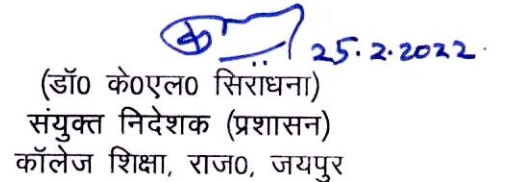 25.2.2022
(डॉ0 के0एल0 सिराधना)
संयुक्त निदेशक (प्रशासन)
कॉलेज शिक्षा, राज0, जयपुर